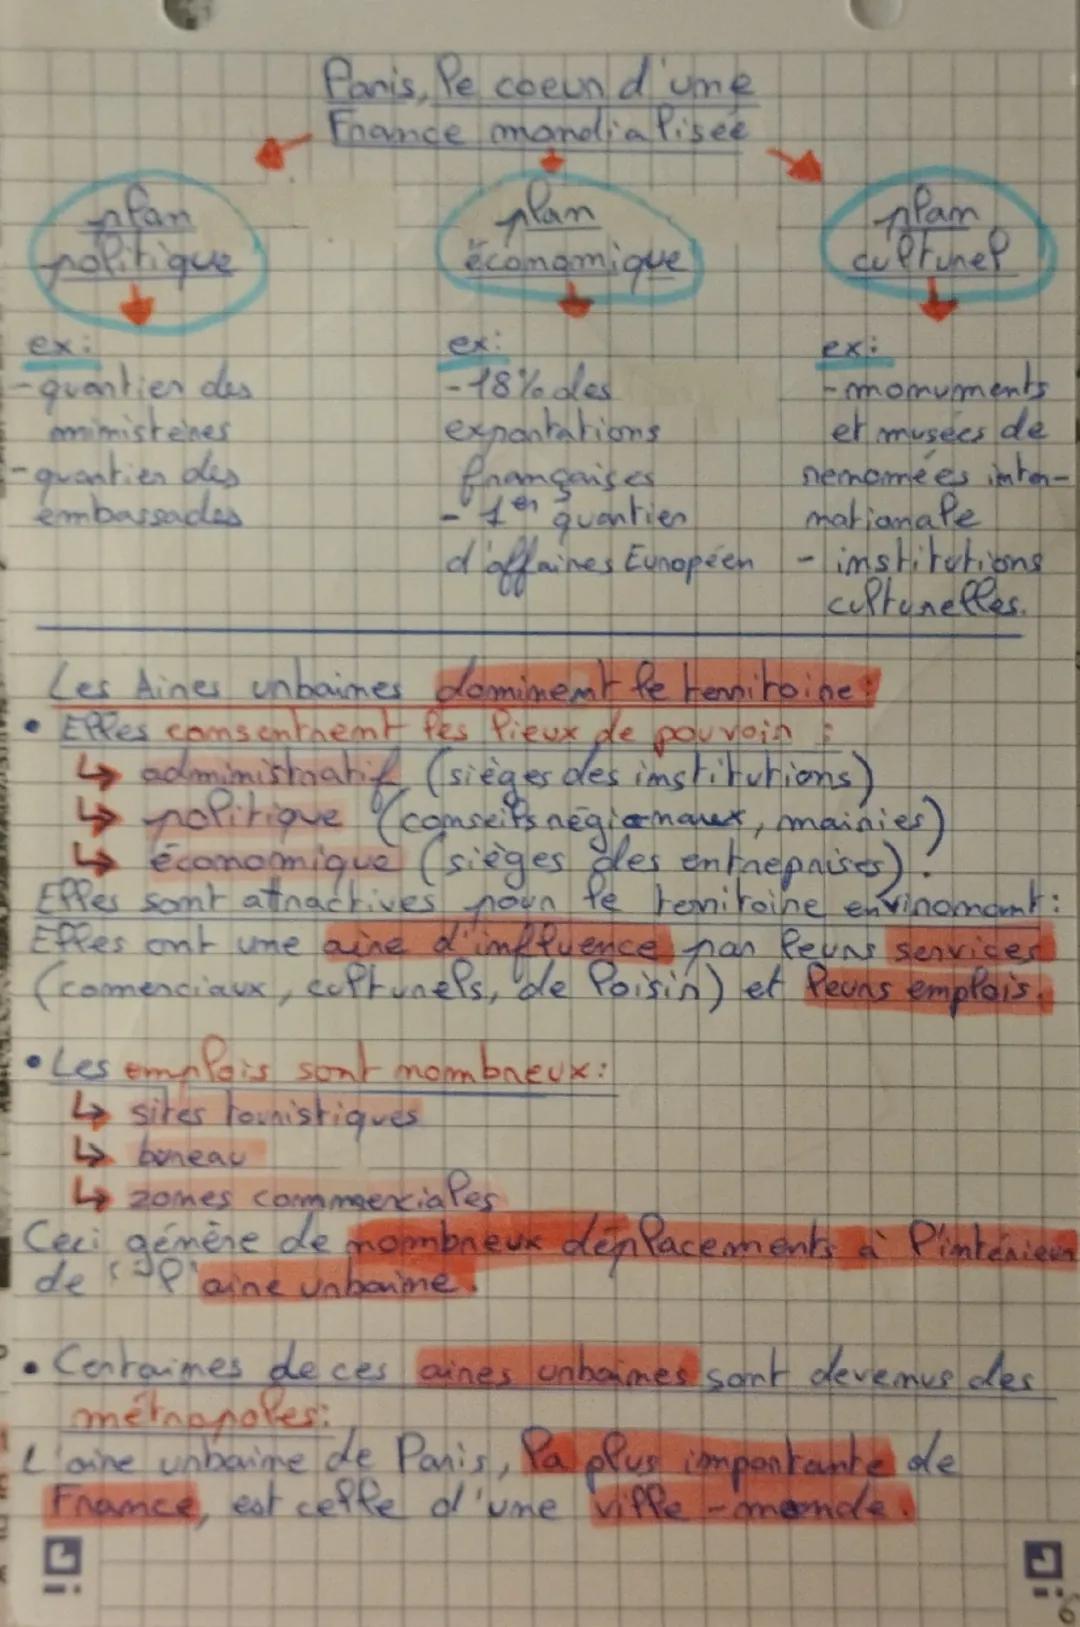 Paris, le coeur d'une
France mondialisée
plan
politique
ex:
- quartier des
ministères
- quartier des
embassades
plan
économique
ex:
- 18% des
exportations
françaises
- 1er quartier
d'affaires Européen
plan
culturel
ex:
- monuments
et musées de
renomées inter-
nationale
- institutions
culturelles.
Les Aires urbaines dominent le territoire:
• Elles consentrent les lieux de pouvoir :
↳ administratif (sièges des institutions)
↳ politique (conseils régionaux, mairies)
↳ économique (sièges des entreprises).
Elles sont attractives pour le territoire environant:
Elles ont une aire d'influence par leurs services
(comerciaux, culturels, de loisir) et leurs emplois.
• Les emplois sont nombreux:
↳ sites touristiques
↳ bureau
↳ zones commerciales
Ceci génère de nombreux déplacements à l'intérieur
de l'aire urbaine.
• Certaines de ces aires urbaines sont devenus des
métropoles:
L'aire urbaine de Paris, la plus importante de
France, est celle d'une ville-monde.